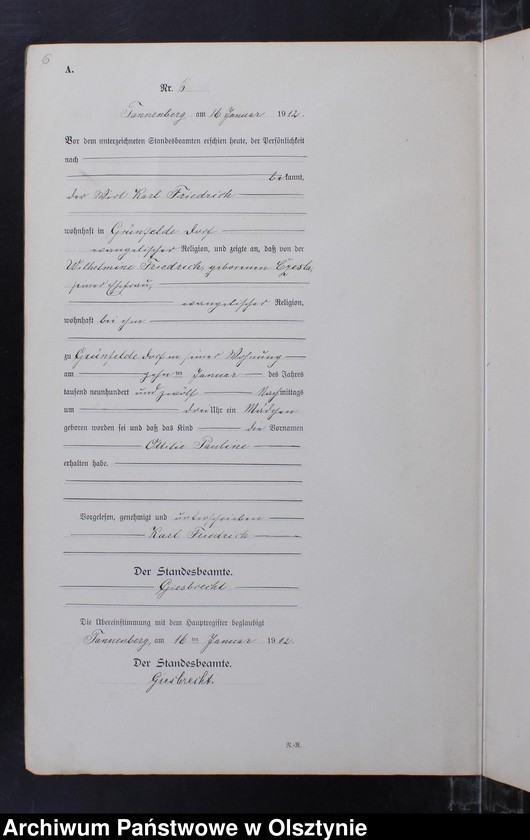 6
A.
Nr. 6
Tannenberg am 16 Januar 1912.
Vor dem unterzeichneten Standesbeamten erschien heute, der Persönlichkeit
nach
bekannt,
der Wirt Karl Friedrich
wohnhaft in Grünfelde Dorf
evangelischer Religion, und zeigte an, daß von der
Wilhelmine Friedrich, geborenen
seiner Ehefrau,
evangelischer Religion,
wohnhaft bei ihm
zu Grünfelde Dorf in seiner Wohnung
am zehn ten Januar des Jahres
tausend neunhundert und zwölf Nachmittags
um drei Uhr ein Mädchen
geboren worden sei und daß das Kind die Vornamen
Ottilie Pauline
erhalten habe.
Vorgelesen, genehmigt und unterschrieben
Karl Friedrich
Der Standesbeamte.
Giesbrecht
Die Übereinstimmung mit dem Hauptregister beglaubigt
Tannenberg, am 16 ten Januar 1912.
Der Standesbeamte.
Giesbrecht.
R.-R.
Archiwum Państwowe w Olsztynie